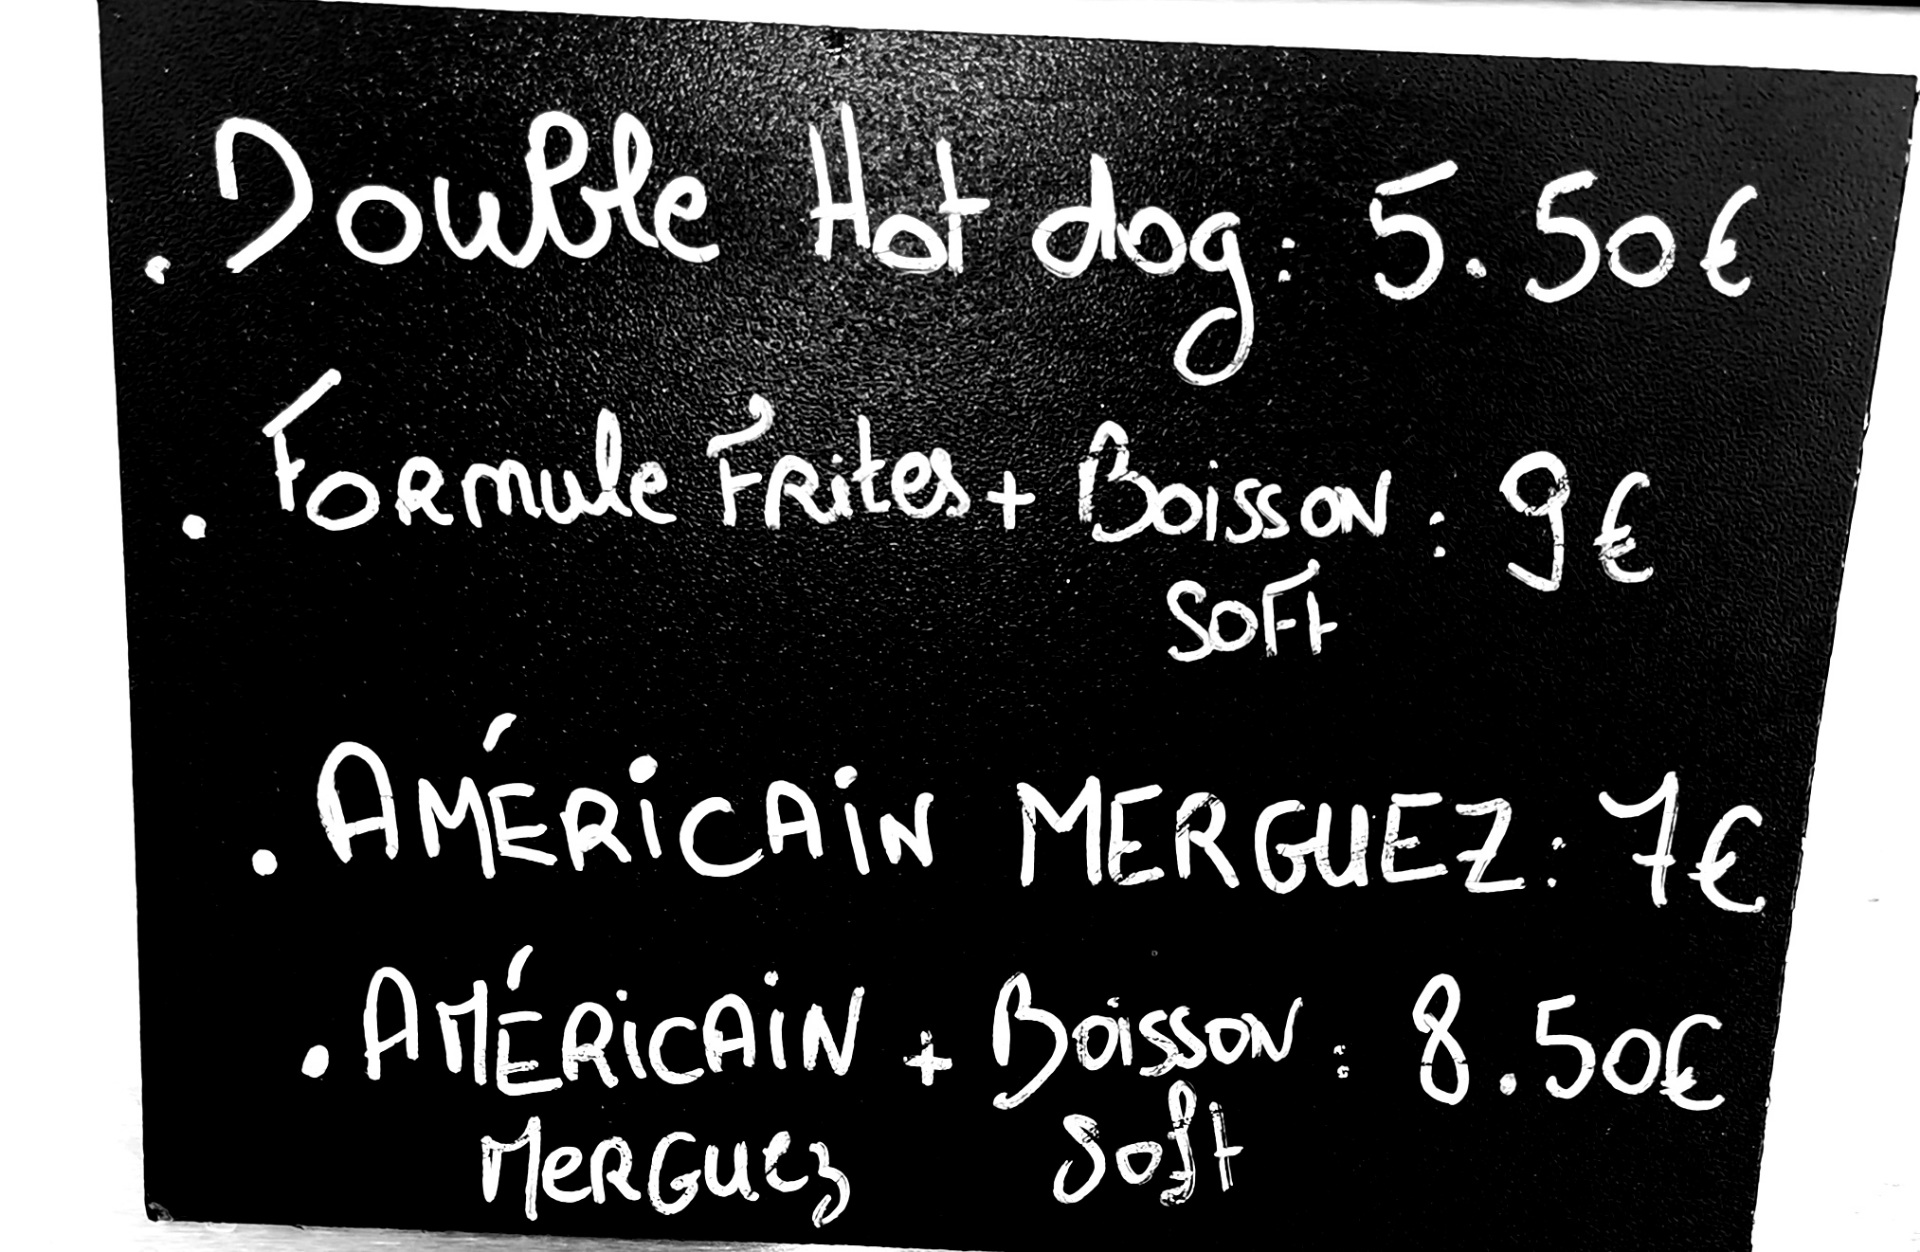 . Double Hot dog : 5.50€
. Formule Frites + Boisson : 9€
Soft
. AMÉRiCAiN MERGUEZ : 7€
. AMÉRiCAiN + Boisson : 8.50€
MerGuez Soft